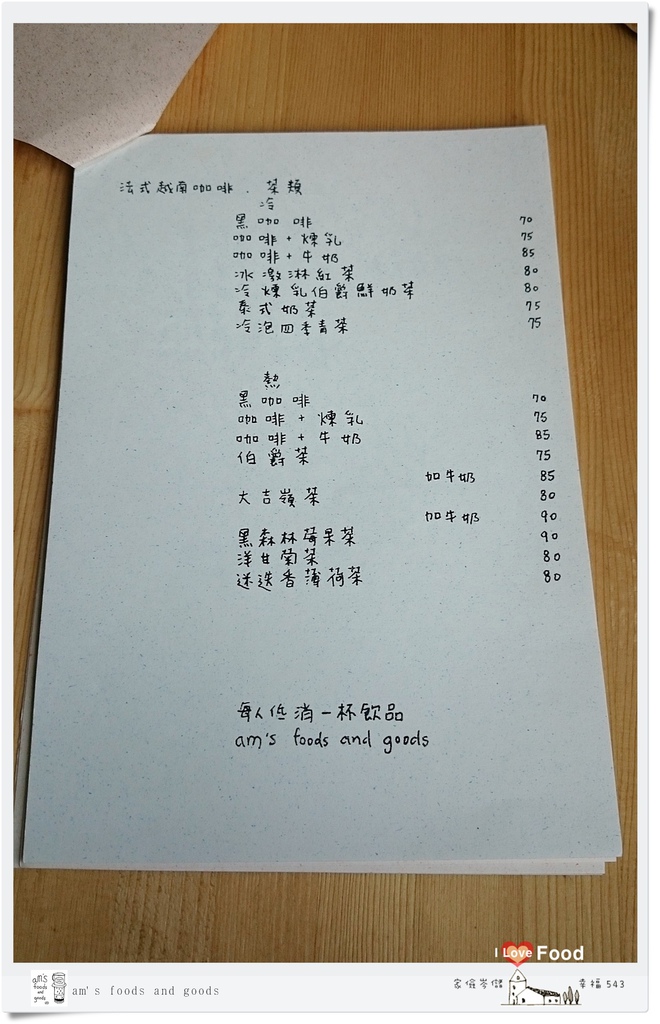 法式越南咖啡.茶類
冷
黑咖啡 70
咖啡+煉乳 75
咖啡+牛奶 85
冰激淋紅茶 80
冷煉乳伯爵鮮奶茶 80
泰式奶茶 75
冷泡四季青茶 75
熱
黑咖啡 70
咖啡+煉乳 75
咖啡+牛奶 85
伯爵茶 75
加牛奶 85
大吉嶺茶 80
加牛奶 90
黑森林莓果茶 90
洋甘菊茶 80
迷迭香薄荷茶 80
每人低消一杯飲品
am's foods and goods
I Love Food
am's foods and goods
am's foods and goods
幸福543